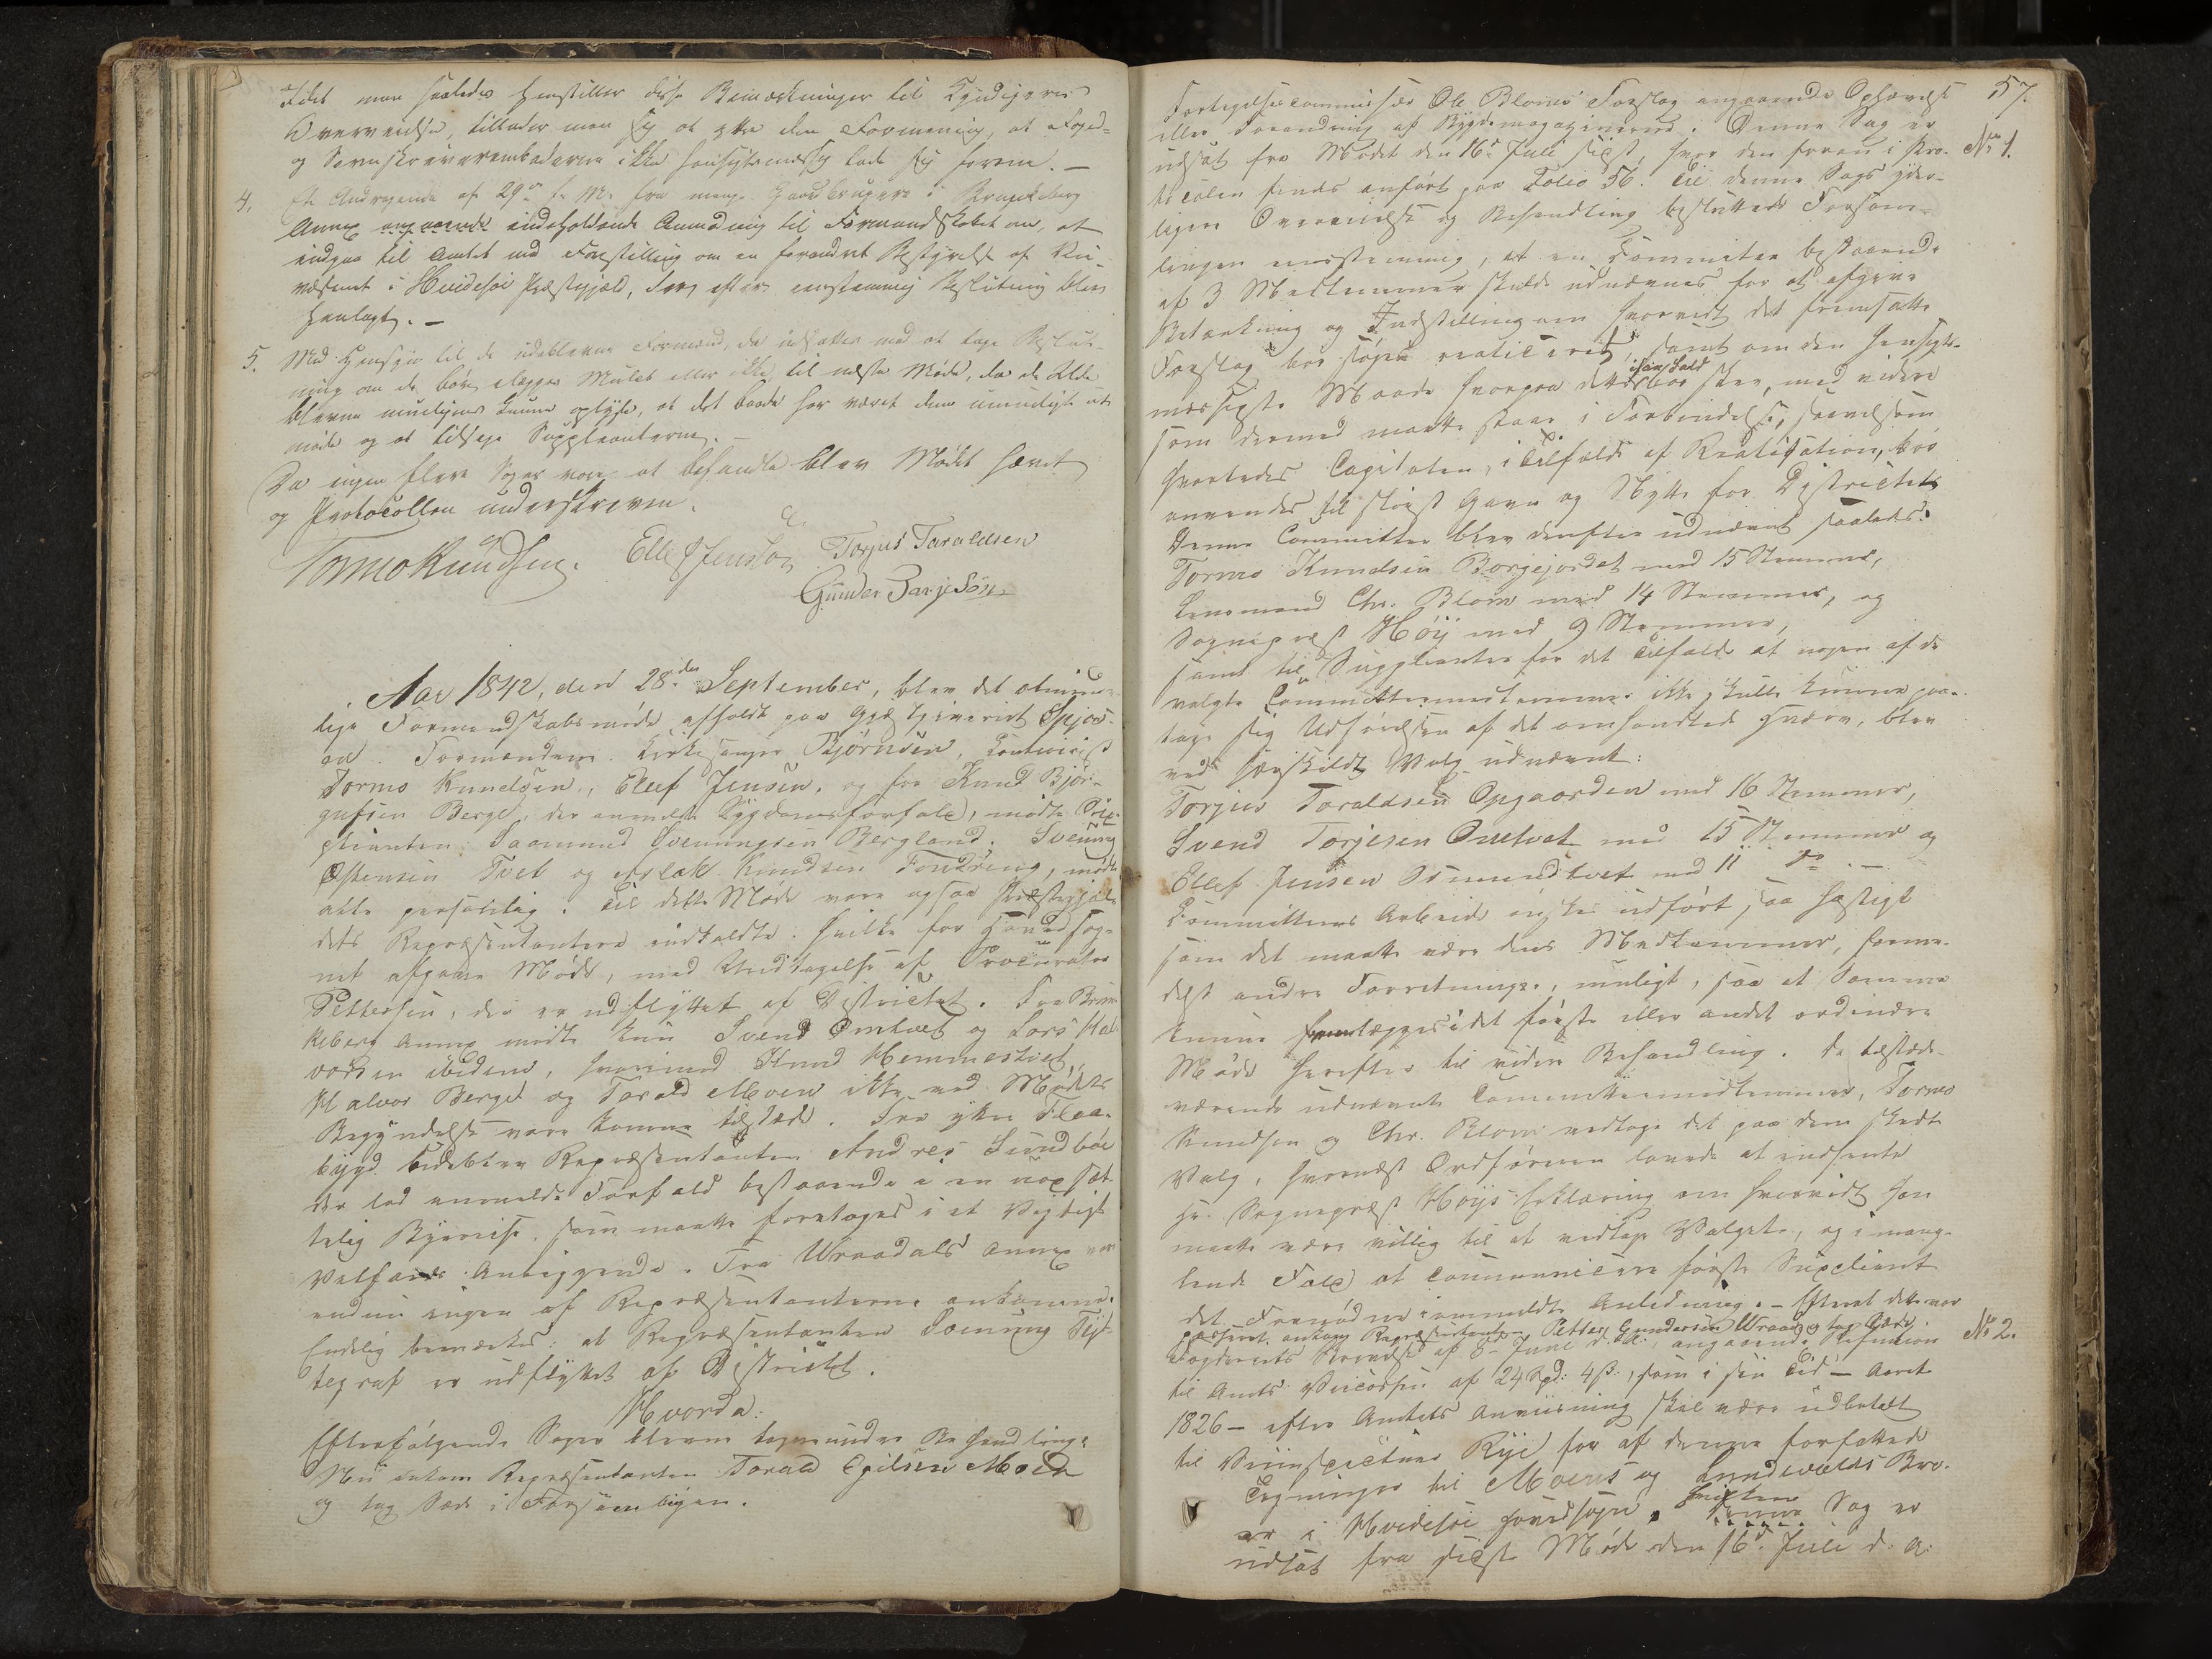 Idet man saaledes henstiller disse Bemærkninger til Kyndigeres
Overveielse, tillader man sig at yttre den Formening, at Foged-
og Sorenskriverembederne ikke hensigtsmæssig lade sig forene. —
4. Et Andragende af 29de f. M. fra mange Gaardbrugere i Brunkeberg
Annex angaaende indeholdende Anmodning til Formandskabet om, at
indgaa til Amtet med Forestilling om en forandret Bestyrelse af
væsenet i Hvidesøe Præstegjæld, Sag efter eenstemmig Beslutning blev
henlagt. —
5. Med Hensyn til de udeblevne Formænd, da udsattes med at tage Beslut-
ning om de bør ilægges Mulct eller ikke til næste Møde, da de Ude-
blevne muligens kunne oplyse, at det baade har været dem umuligt at
møde og at tilsige Suppleanterne. —
Da ingen flere Sager vare at behandle blev Mødet hævet
og Protocollen underskreven.
Tormo Knudsen. Ellef Jensen Torjus Taraldsen
Gunder Tarjesøn
Aar 1842, den 28de September, blev det alminde-
lige Formandskabsmøde afholdt paa Gjæstgiveriet Spjos-
od. Formændene. Kirkesanger Bjørnsen,
Tormo Knudsen, Ellef Jensen, og for Knud Bjør-
gufsen Berge, der anmeldte Sygdomsforfald, mødte Sup-
plianten Saamund Svenungsen Bergland. Svenung
Østensen Tvet og Aslak Knudsen Fondreng, mødte
alle personlig. Til dette Møde vare ogsaa Præstegjæl-
dets Repræsentantere indkaldte: hvilke for Hovedsog-
net afgave Møde, med Undtagelse af Procurator
Pettersen, der er udflyttet af Districtet. Fra Brun-
keberg Annex mødte kun Svend Omtvet og Lars Hal-
vorsen ibidem, hvorimod Knud Hemmestvet,
Halvor Berget og Tarald Moen ikke ved Mødets
Begyndelse vare komne tilstæde. Fra ytre Flaa-
bygd udeblev Repræsentanten Andres Sundbøe
der lod anmelde Forfald bestaaende i en uopsæt-
telig Byereise, som maatte foretages i et vigtigt
Velfærds Anliggende. Fra Wraadals Annex var
endnu ingen af Repræsentanterne ankomne.
Endelig bemærkes: at Repræsentanten Sveinung
er udflyttet af Districtet.
Hvorda:
Efterfølgende Sager bleve tagne under Behandling:
Nu ankom Repræsentanten Tarald Egilsen Moen
og tog Sæde i Forsamlingen.
57.
Forligelsescommissær Ole Bloms Forslag angaaende Ophævelse
eller Forandring af Bygdemagazinerne. Denne Sag er
No 1.
udsat fra Mødet den 16de Juli sidst, hvor den foran i Pro-
tocolen findes anført paa Folio 56. Til denne Sags yder-
ligere Overveielse og Behandling besluttede Forsam-
lingen eenstemmig, at en Committee bestaaende
af 3 Medlemmer skulde udnævnes for at afgive
Betænkning og Indstilling om hvorvidt det fremsatte
Forslag bør søges realiceret, samt om den hensigts-
mæssigste Maade hvorpaa dette i saa Fald bør skee, med videre
som dermed maatte staae i Forbindelse, saavelsom
hvorledes Capitalen, i Tilfælde af Realisation, bør
anvendes til størst Gavn og Nytte for Districtet.
Denne Committee blev derefter udnævnt saaledes:
Tormo Knudsen Borgejordet med 15 Stemmer,
Lensmand Chr. Blom med 14 Stemmer, og
Sognepræst Høÿ med 9 Stemmer,
samt til Supplianter for det Tilfælde at nogen af de
valgte Committeemedlemmer ikke skulle kunne paa-
tage sig Udførelsen af det omhandlede Hværv, blev
ved særskildt Valg udnævnt:
Torjus Taraldsen Opgaarden med 16 Stemmer,
Svend Torjesen Omtvet med 15 Stemmer og
Ellef Jensen Simundtvet med 11 do. —
Committeens Arbeide ønskes udført saa hastigt
som det maatte være dens Medlemmer, forme-
delst andre Forretninger, muligt, saa at Samme
kunne fremlægges i det første eller andet ordinære
Møde herefter til videre Behandling. De tilstæde-
værende udnævnte Committeemedlemmer, Tormo
Knudsen og Chr. Blom vedtoge det paa dem skedte
Valg, hvornæst Ordføreren lovede at indhente
Hr. Sognepræst Høÿs Erklæring om hvorvidt han
maatte være villig til at vedtage Valget, og i mang-
lende Fald at communicere første Supliant
det Fornødne i anmeldte Anledning. — Efterat dette var
passeret, ankom Repræsentanten Petter Gundersen Wraae og tog Sæde.
No 2.
Fogderiets Skrivelse af 8de Juni d. A., angaaende Refusion
til Amts af 24 Spd. 4 ß., som i sin Tid — Aaret
1826 — efter Amtets Anviisning skal være udbetalt
til Veiinspecteur Rye for af denne forfattede
Tegninger til Moens og Lundevalds Bro-
er i Hvidesøe Hovedsogn, hvilken Denne Sag er
udsat fra sidste Møde den 16de Juli d. A.